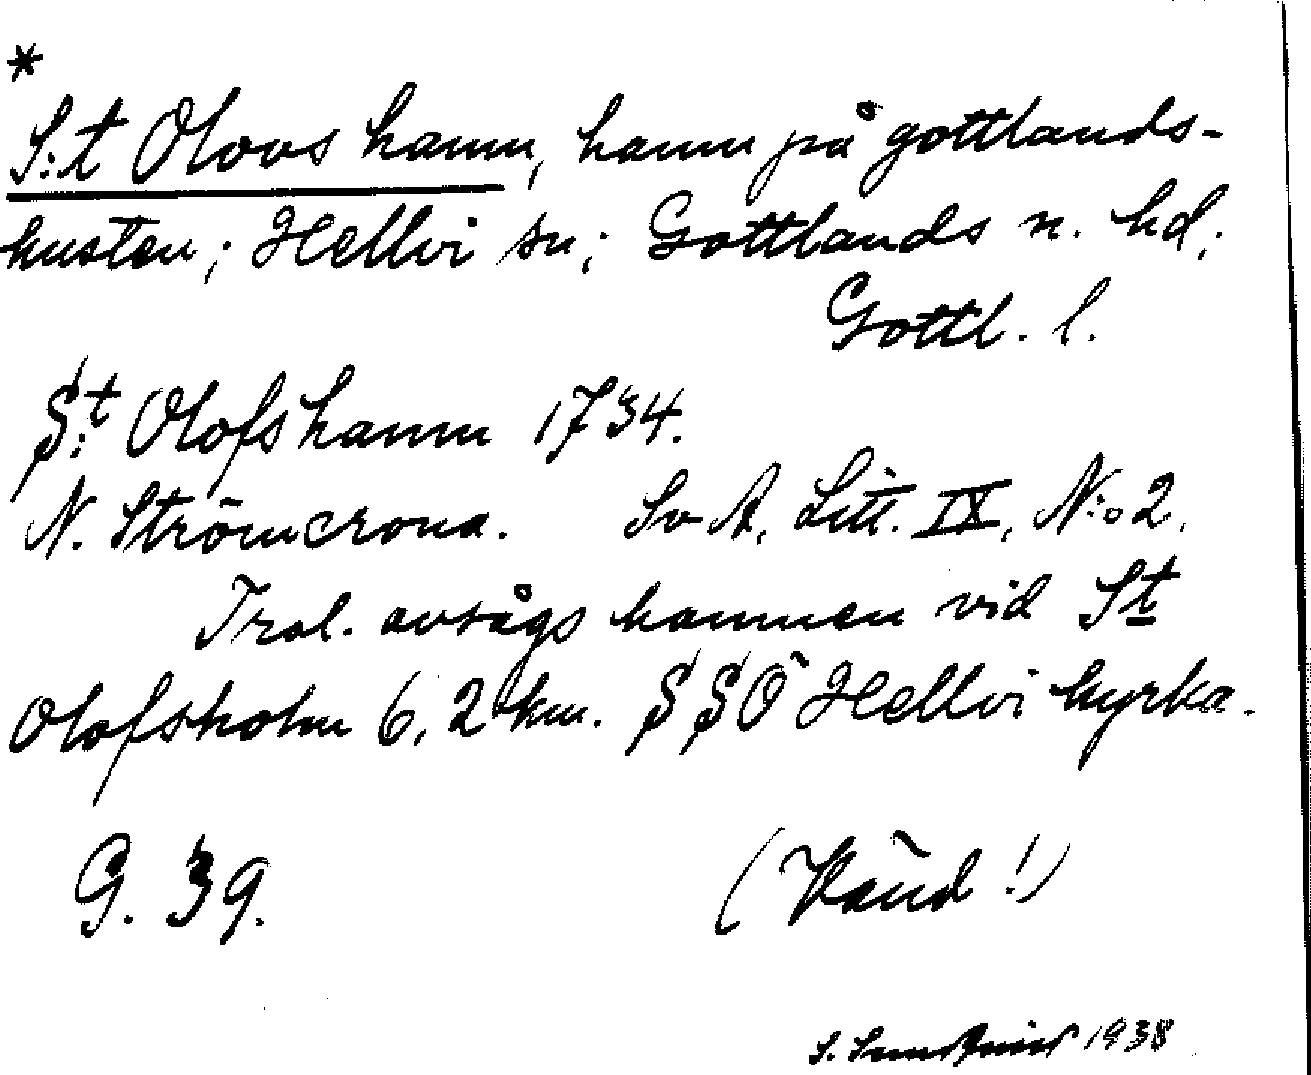 *
S:t Olovs hamn, hamn på gottlands-
kusten; Hellvi sn; Gottlands n. hd;
Gottl. l.
S:t Olofs hamn 1734.
N. Strömcrona. Sv A, Litt. IX, N:o 2.
Trol. avsågs hamnen vid St
Olofsholm 6,2 km. SSÖ Hellvi kyrka.
G. 39.
(Vänd!)
S. Sundquist 1938